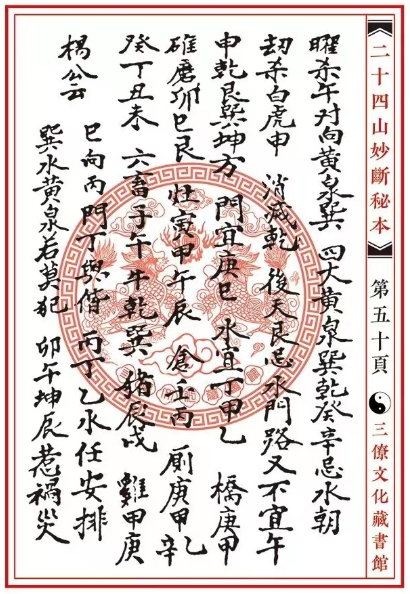 曜杀午対向黄泉巽 四大黄泉巽乾癸辛忌水朝
劫杀白虎申 消滅乾 後天艮忌水門路又不宜午
申乾艮巽坤方 門宜庚巳 水宜丁甲乙 橋庚甲
碓磨卯巳艮 灶寅甲午辰 倉壬丙 厠庚甲乙辛
癸丁丑未 六畜子午 牛乾巽 猪辰戌 雞甲庚
楊公云
巳向丙門丁與偕 丙丁乙水任安排
巽水黄泉若莫犯 卯午坤辰惹禍災
【二十四山妙斷秘本】 第五十頁 三僚文化藏書館